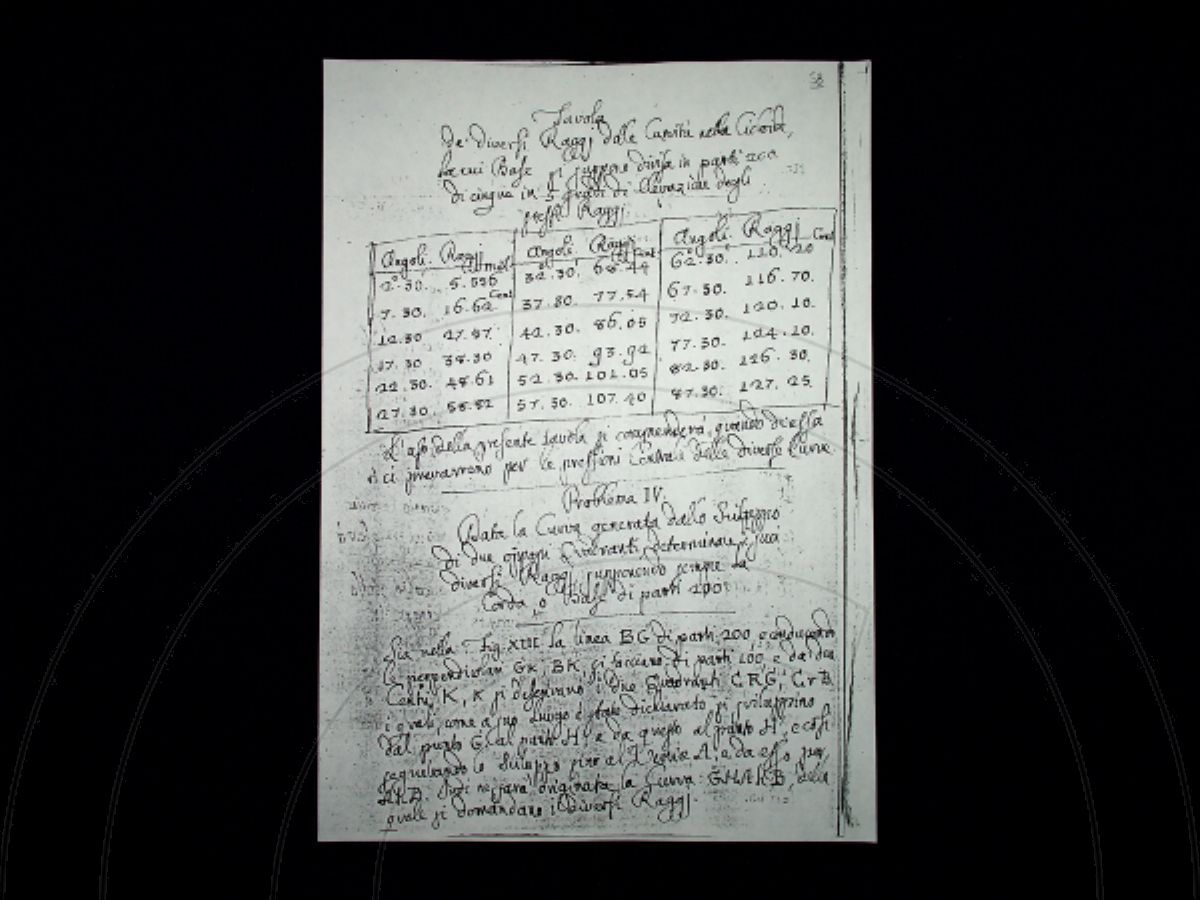 58
Tavola
de' diversi Raggj delle Curvità nella Cicloide,
la cui Base si suppone divisa in parti 200
di cinque in 5 gradi di Elevazione degli
stessi Raggj.
Angoli. Raggj Angoli. Raggj Angoli. Raggj
mill. Cent Cent
2°.30'. 5.556 32.30. 68.44 62.30. 110.20
Cent
7.30. 16.62 37.30. 77.54 67.30. 116.70.
12.30 27.57 42.30. 86.05 72.30. 120.10.
17.30 38.30 47.30. 93.92 77.30. 124.10.
22.30. 48.61 52.30. 101.05 82.30. 126.30.
27.30. 58.82 57.30. 107.40 87.30. 127.25.
L'uso della presente tavola si comprenderà, quando di essa
ci serviremo per le pressioni Centrali delle diverse Curve
Problema IV.
Data la Curva generata dallo Sviluppo
di due Quadranti, determinare i suoi
diversi Raggj supponendo sempre la
Corda, o Base di parti 200.
Sia nella Fig. XIII. la linea BG di parti 200 e conducendo
le perpendicolari GK, BK, si facciano di parti 100, e da due
Centri K, K si descrivano i due Quadranti CRG, CrB
i quali, come a suo luogo è stato dichiarato, si sviluppino
dal punto G al punto H, e da questo al punto H, e così
seguitando lo Sviluppo sino al A, e da esso per
quale si domandano i diversi Raggj.